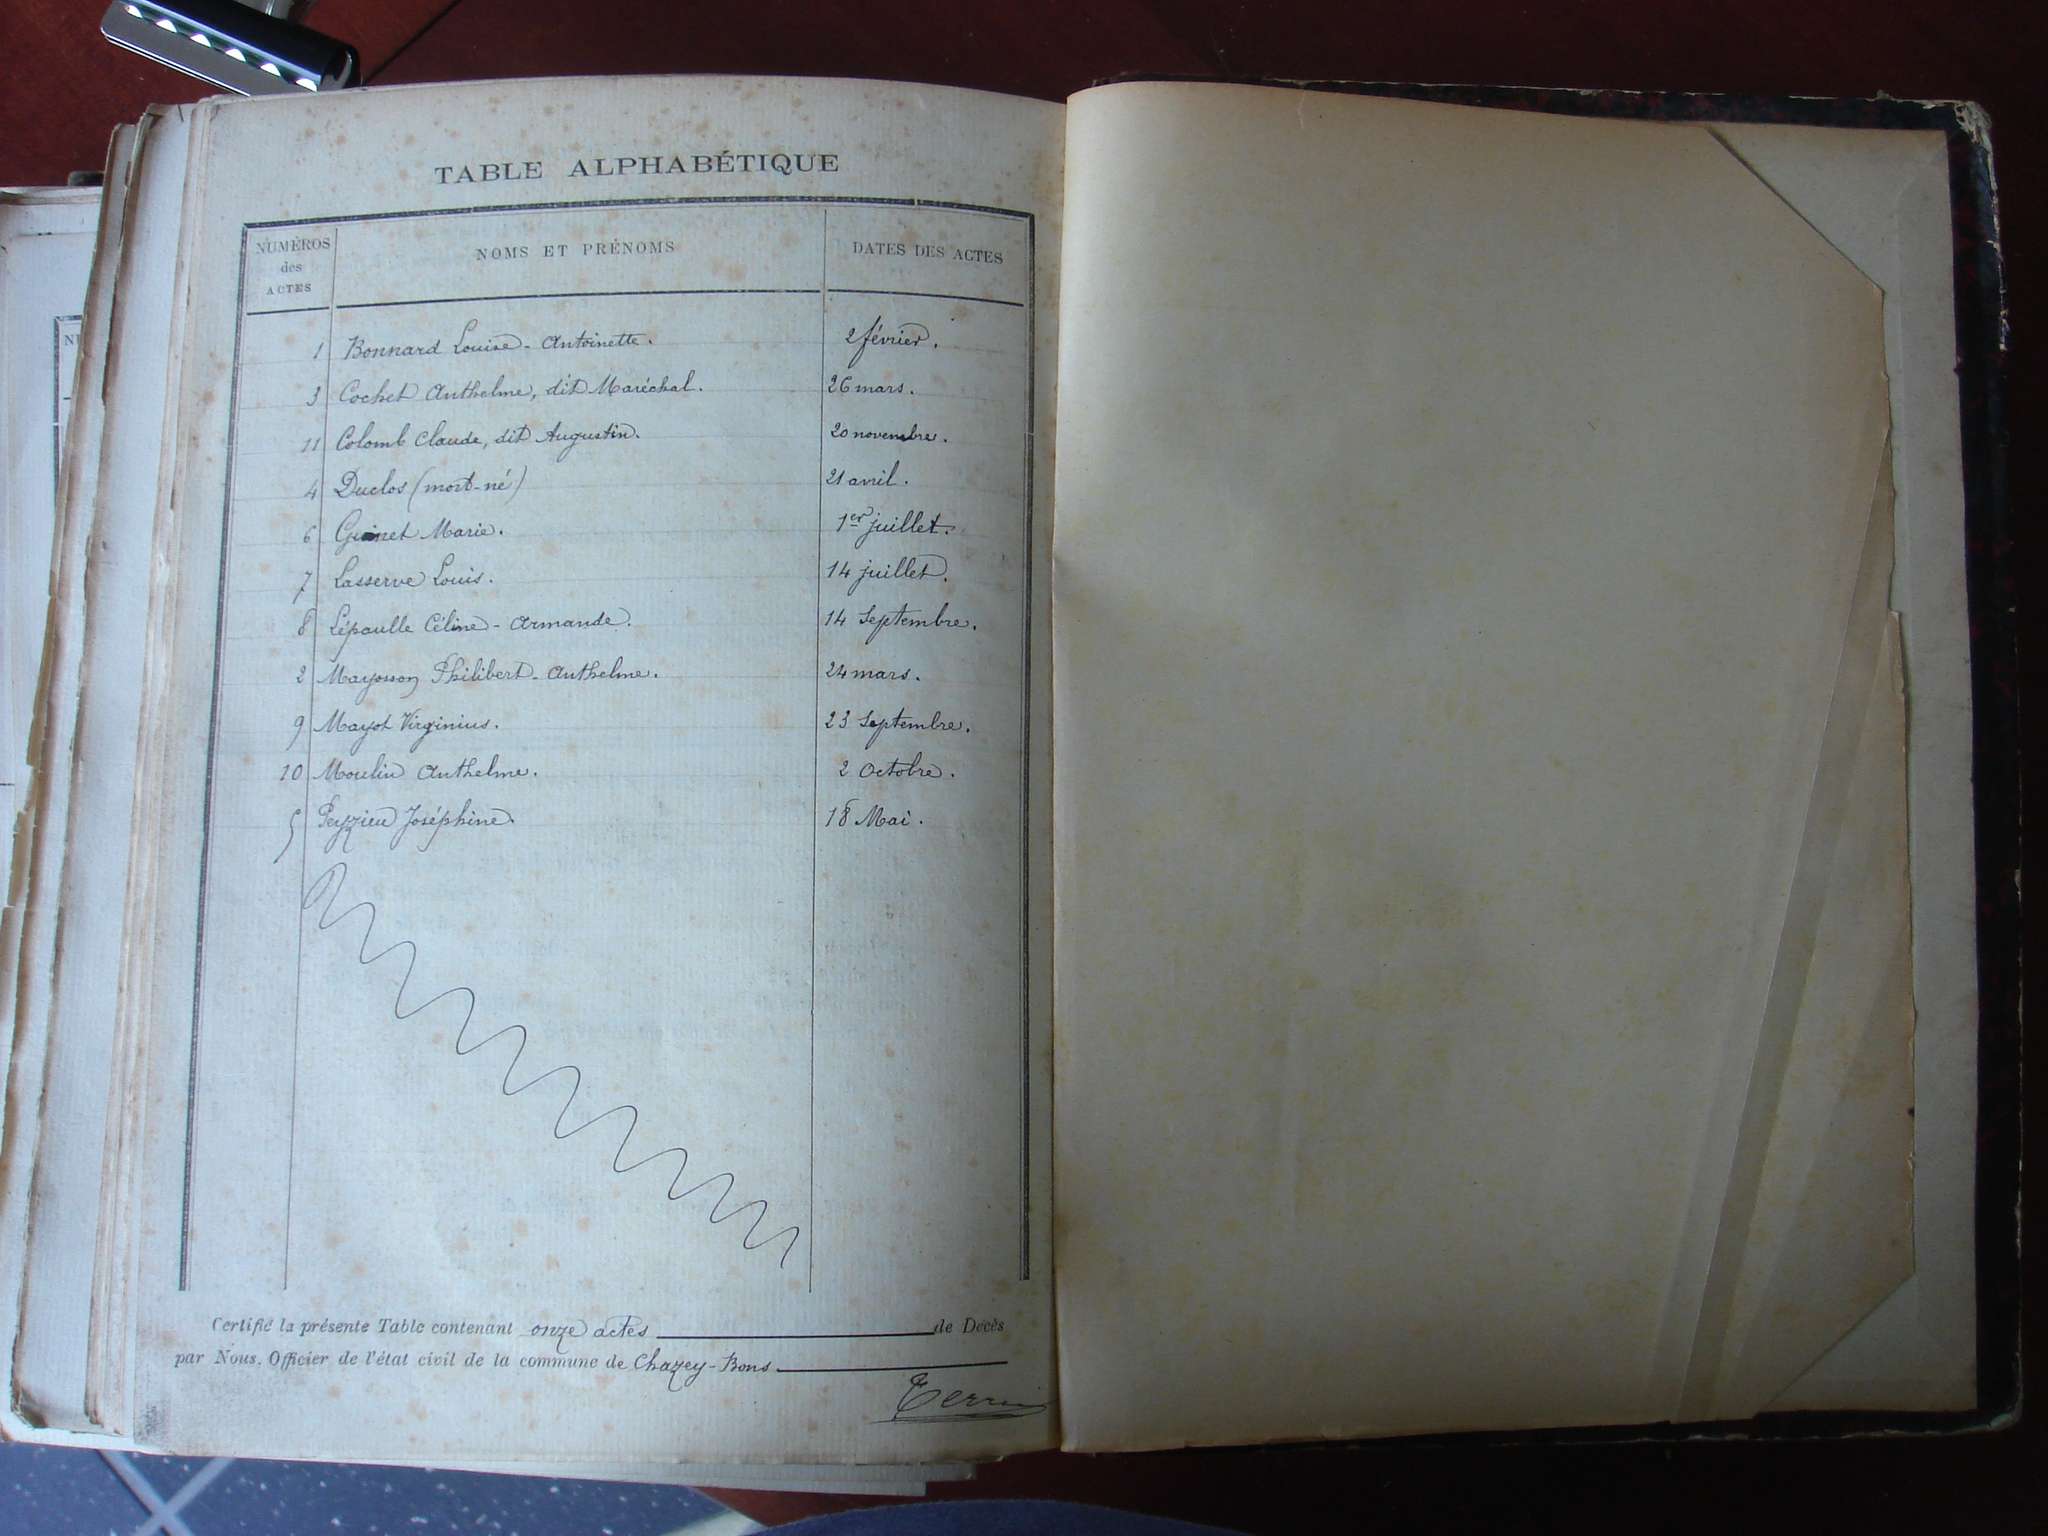 TABLE ALPHABÉTIQUE
NUMÉROS des ACTES NOMS ET PRÉNOMS DATES DES ACTES
1 Bonnard Louise-Antoinette. 2 février.
3 Cochet Anthelme, dit Maréchal. 26 mars.
11 Colomb Claude, dit Augustin. 20 novembre.
4 Duclos (mort-né) 21 avril.
6 Marie. 1er juillet.
7 Lasserve Louis. 14 juillet.
8 Lépaulle Céline-Armande. 14 Septembre.
2 Mayosson Philibert-Anthelme. 24 mars.
9 Mayot Virginius. 23 Septembre.
10 Moulin Anthelme. 2 Octobre.
5 Peyzieu Joséphine. 18 Mai.
Certifié la présente Table contenant onze actes de Décès
par Nous, Officier de l'état civil de la commune de Chazey-Bons